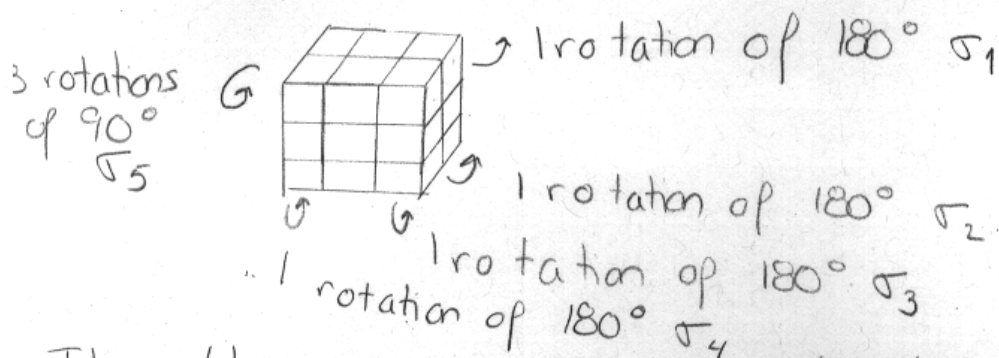 1 rotation of 180° σ1
3 rotations
of 90°
σ5
1 rotation of 180° σ2
1 rotation of 180° σ3
1 rotation of 180° σ4